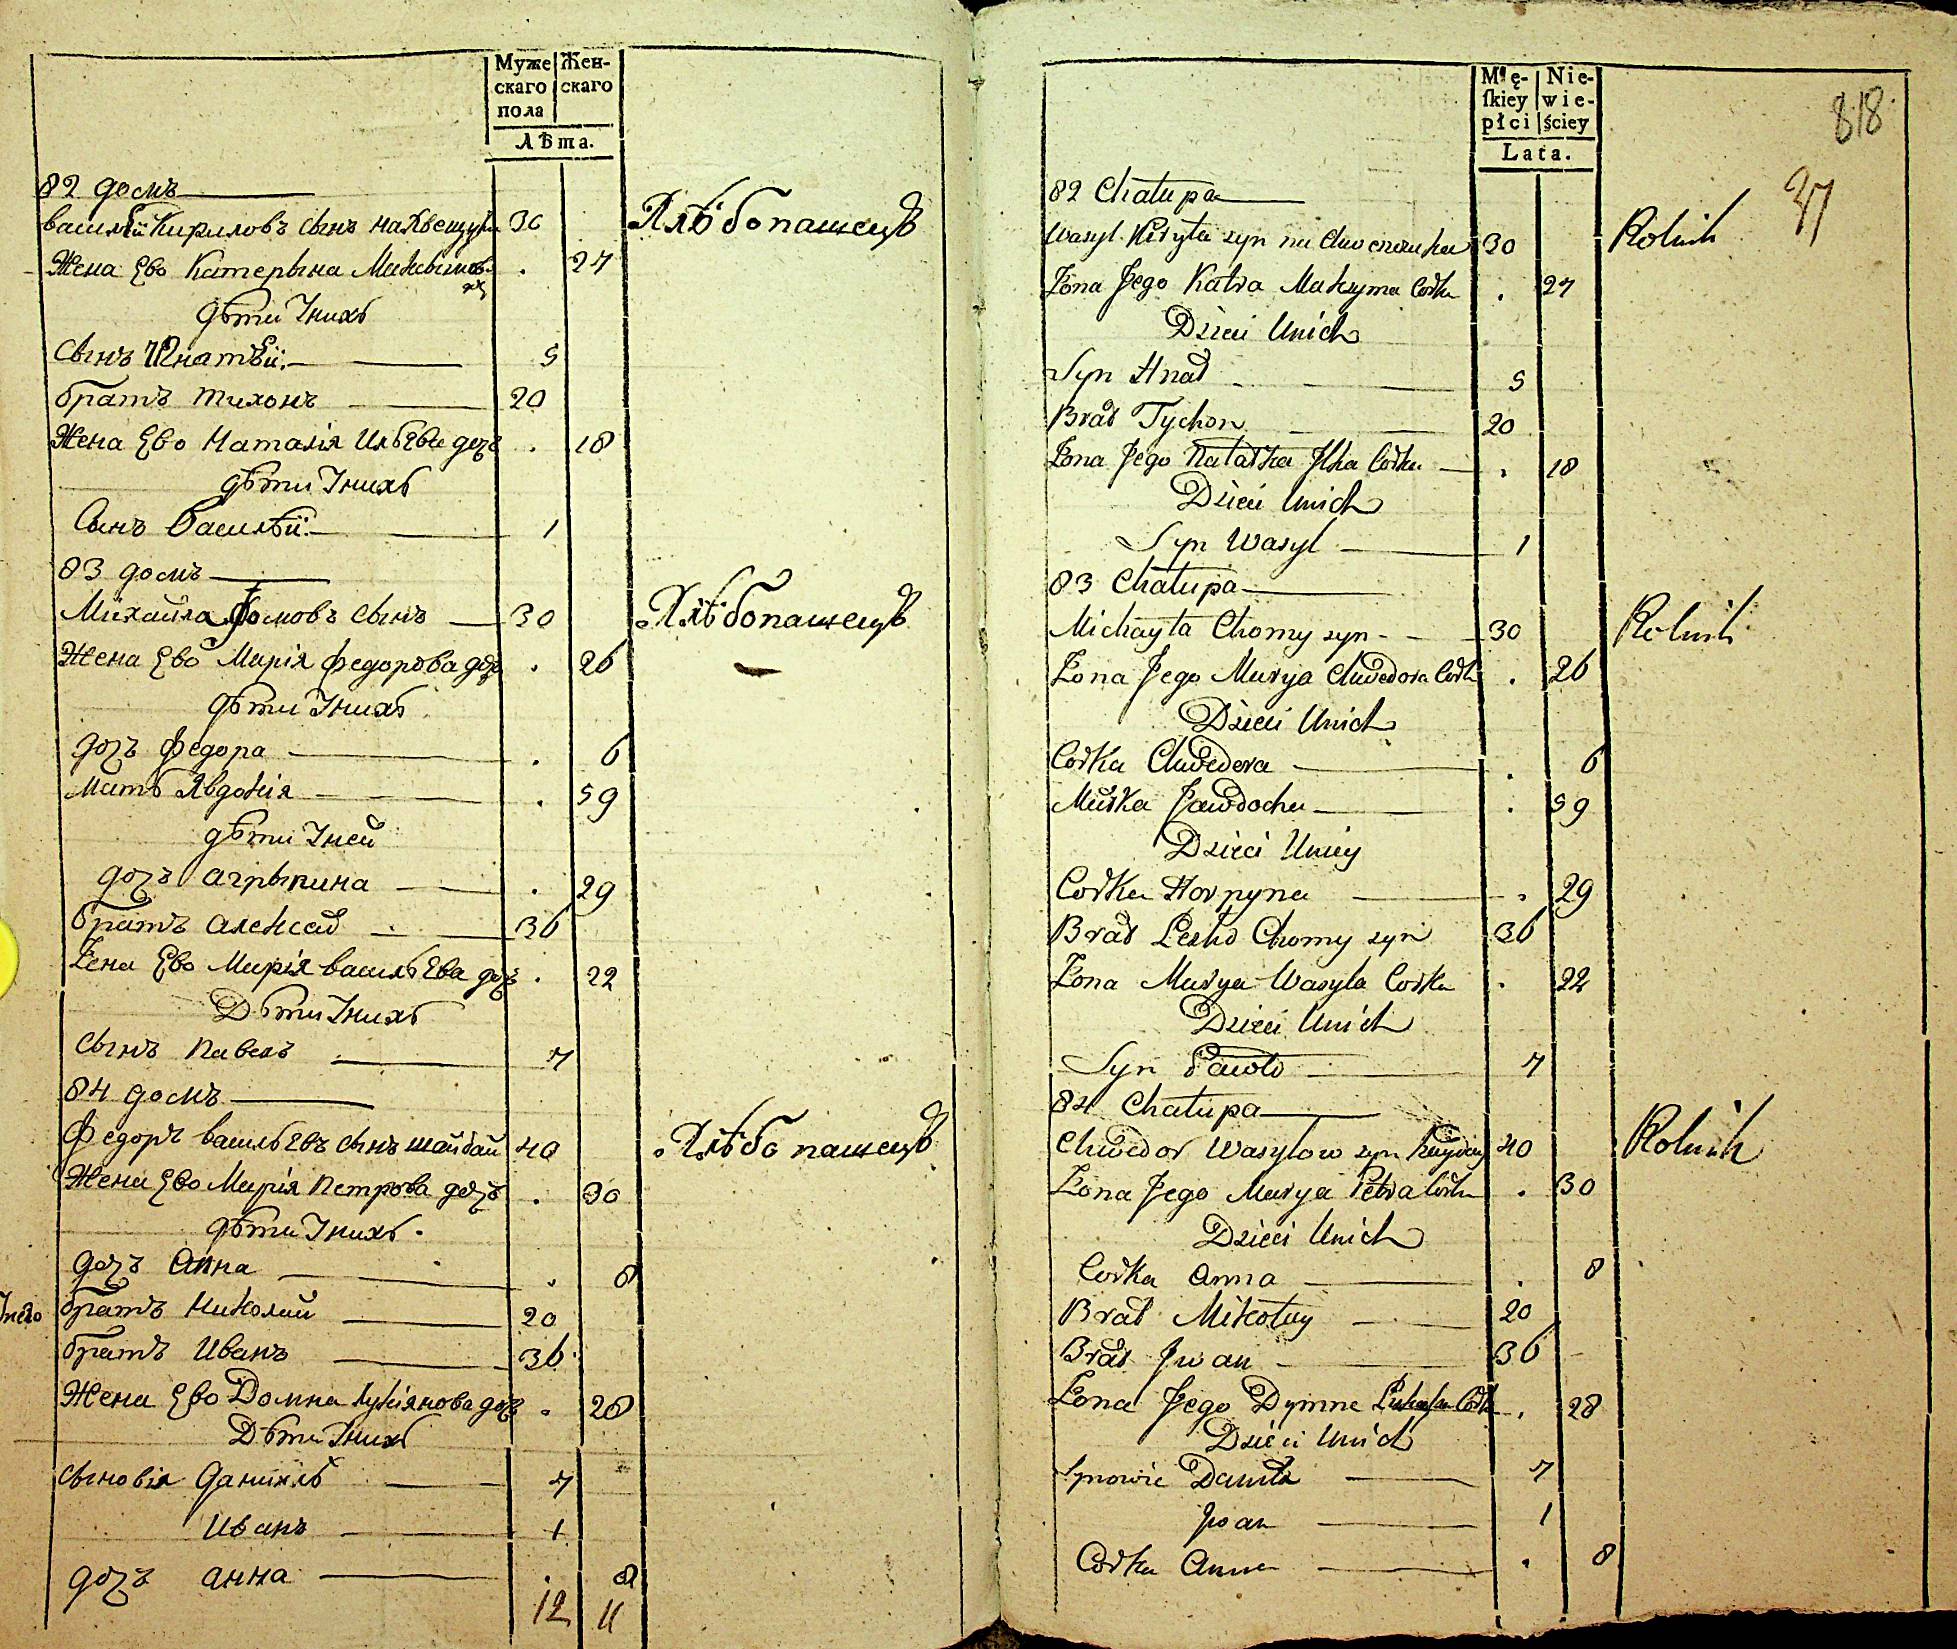 Муже Жен-
скаго скаго
пола
лѣта.
82 домъ
василѣй Кириловъ сынъ 30 Хлѣбопашецъ
Жена Ево Катерына Максымов . 27
дѣти Унихъ
сынъ Игнатѣй 5
братъ тихонъ 20
Жена Ево Наталія Ильева дочь . 18
дѣти Унихъ
Сынъ Василѣй 1
83 домъ
Михайла Фомовъ сынъ 30 Хлѣбопашецъ
Жена Ево Марія федорова дочь . 26
дѣти Унихъ
дочъ федора . 6
мать Явдокія . 59
дѣти Уней
дочъ агрыпина . 29
братъ алексай 36
Жена Ево Марія васильева дочъ . 22
Дѣти Унихъ
сынъ павелъ 7
84 домъ
федоръ васильевъ сынъ шайдай 40 Хлѣбопашецъ
Жена Ево Марія петрова дочъ . 30
дѣти Унихъ.
дочъ анна . 8
Унево братъ николай 20
братъ Иванъ 36
Жена Ево Домна лукіянова дочъ . 28
Дѣти Унихъ
сыновія данііль 7
Иванъ 1
дочъ анна . 8
12 11
Mę- Nie-
ſkiey wie-
płci ściey
Lata.
818
37
82 Chałupa
Wasyl Kiryła syn na 30 Rolnik
Żona Jego Katra Maksyma Corka . 27
Dzieci Unich
Syn Hnat 5
Brat Tychon 20
Żona Jego Natałka Jlka Corka . 18
Dzieci Unich
Syn Wasyl 1
83 Chałupa
Michayła Chomy syn 30 Rolnik
Żona Jego Marya Chwedora Corka . 26
Dzieci Unich
Corka Chwedora . 6
Matka Jawdocha . 59
Dzieci Uniey
Corka Horpyna . 29
Brat Lesko Chomy syn 36
Żona Marya Wasyla Corka . 22
Dzieci Unich
Syn Pawło 7
84 Chałupa
Chwedor Wasylow syn 40 Rolnik
Żona Jego Marya Petra Corka . 30
Dzieci Unich
Corka Anna . 8
Brat Mikołay 20
Brat Jwan 36
Żona Jego Dymna Corka . 28
Dzieci Unich
Synowie Daniła 7
Jwan 1
Corka Anna . 8